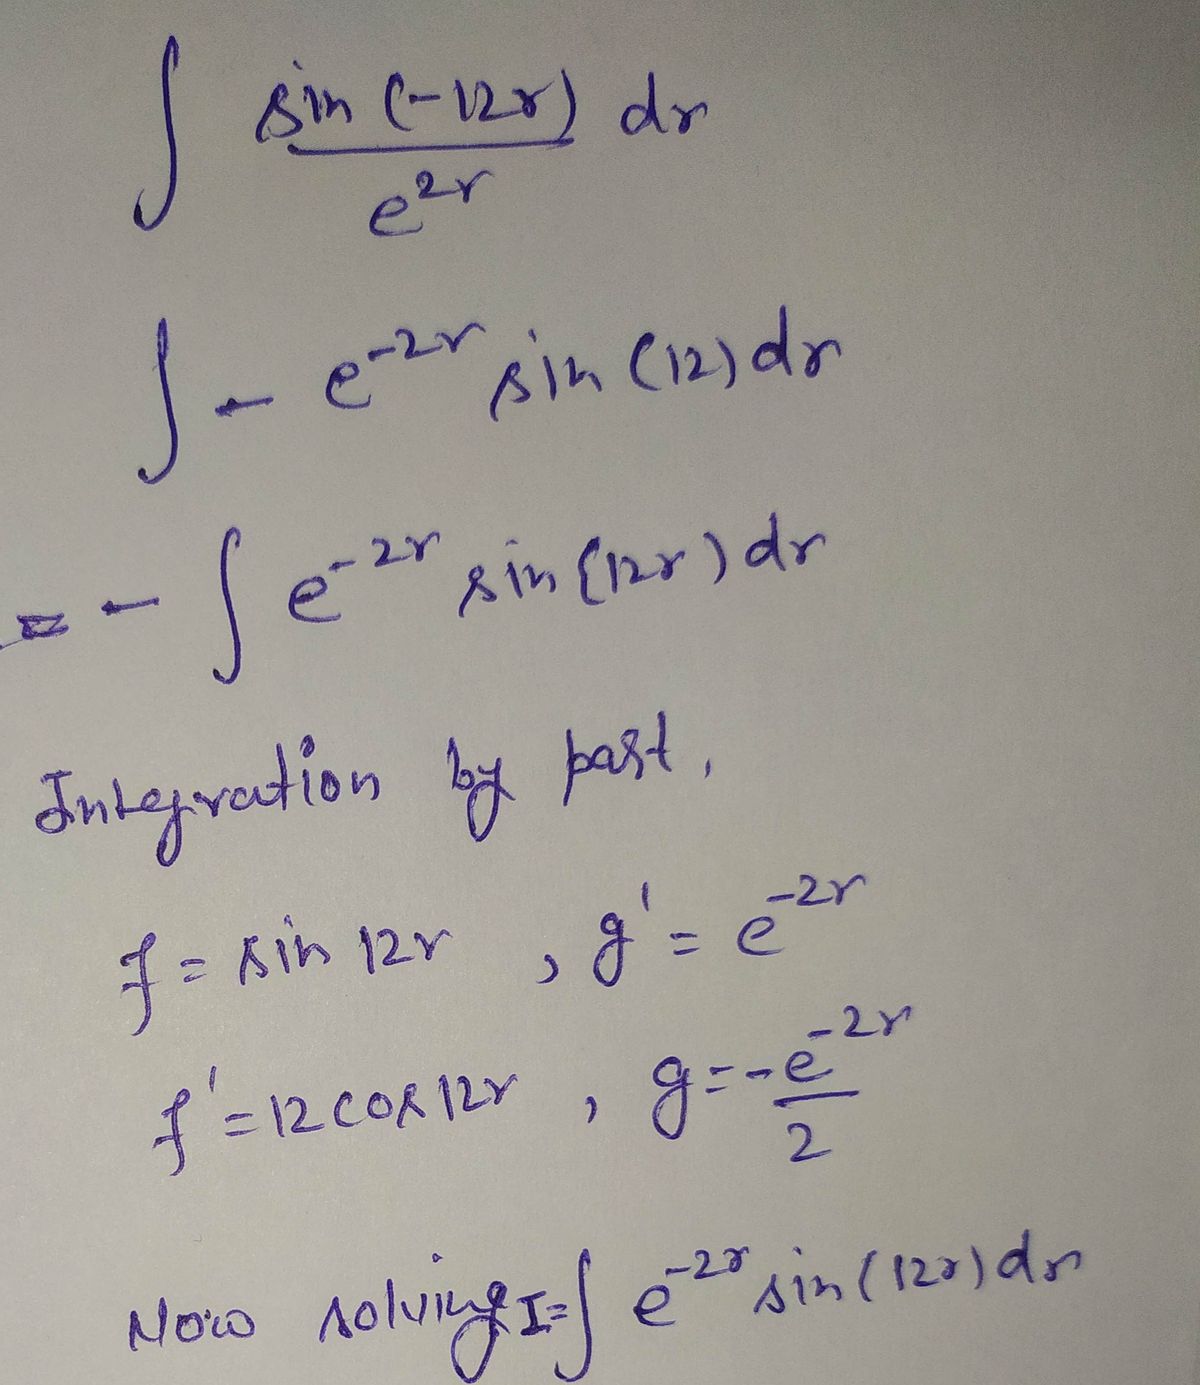 ∫ sin (-12r) / e^{2r} dr
∫ - e^{-2r} sin (12) dr
= - ∫ e^{-2r} sin (12r) dr
Integration by part,
f = sin 12r , g' = e^{-2r}
f' = 12 cos 12r , g = -e^{-2r} / 2
Now solving I = ∫ e^{-2r} sin (12r) dr